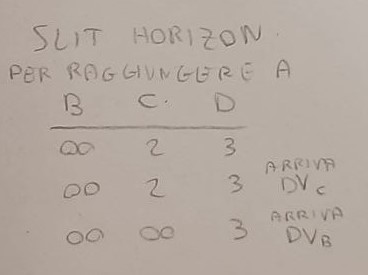 SLIT HORIZON.
PER RAGGIUNGERE A
B C. D
∞ 2 3
∞ 2 3 ARRIVA DVC
∞ ∞ 3 ARRIVA DVB